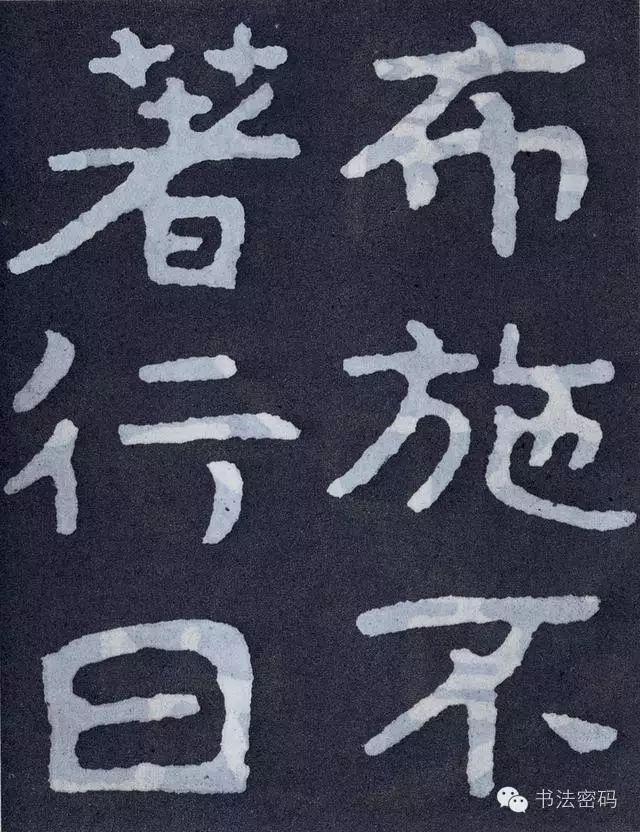 布施不
著行曰
书法密码